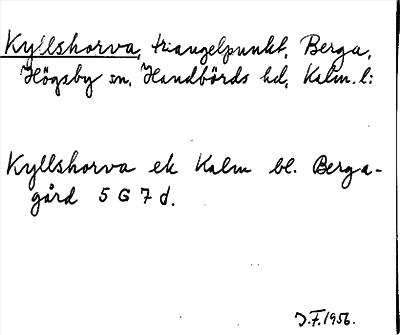 Kyllshorva, triangelpunkt, Berga,
Högsby sn, Handbörds hd, Kalm. l:
Kyllshorva ek Kalm bl. Berga-
gård 5 G 7 d.
J.F. 1956.